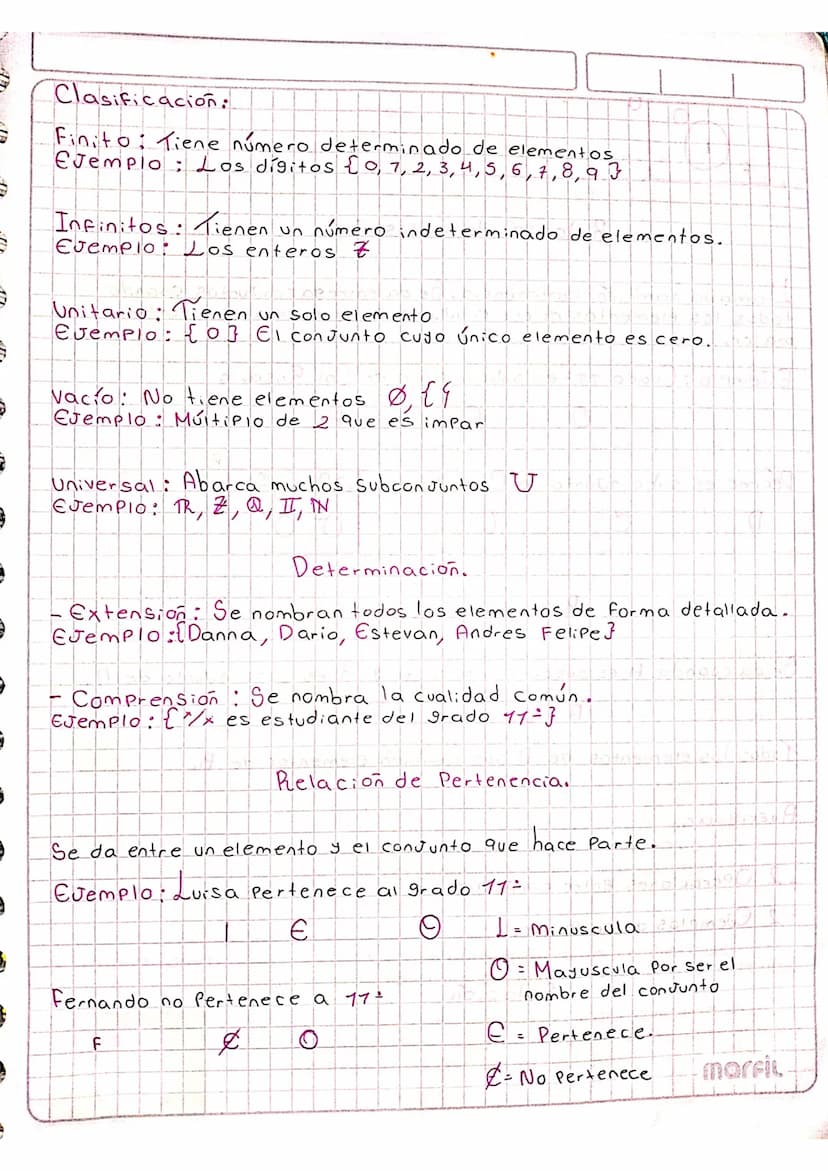 Clasificación:
Finito: Tiene número determinado de elementos
Ejemplo: Los dígitos {0, 1, 2, 3, 4, 5, 6, 7, 8, 9}
Infinitos: Tienen un número indeterminado de elementos.
Ejemplo: Los enteros ℤ
Unitario: Tienen un solo elemento
Ejemplo: {0} El conjunto cuyo único elemento es cero.
Vacío: No tiene elementos Ø, {}
Ejemplo: Múltiplo de 2 que es impar
Universal: Abarca muchos subconjuntos U
Ejemplo: ℝ, ℤ, ℚ, 𝕀, ℕ
Determinación.
- Extensión: Se nombran todos los elementos de forma detallada.
Ejemplo: {Danna, Dario, Estevan, Andres Felipe}
- Comprensión: Se nombra la cualidad común.
Ejemplo: {x/x es estudiante del grado 11°}
Relación de Pertenencia.
Se da entre un elemento y el conjunto que hace parte.
Ejemplo: Luisa pertenece al grado 11°
l ∈ O L = Minuscula
O = Mayuscula por ser el
nombre del conjunto
Fernando no pertenece a 11°
F ∉ O ∈ = Pertenece.
∉ = No pertenece
marfil